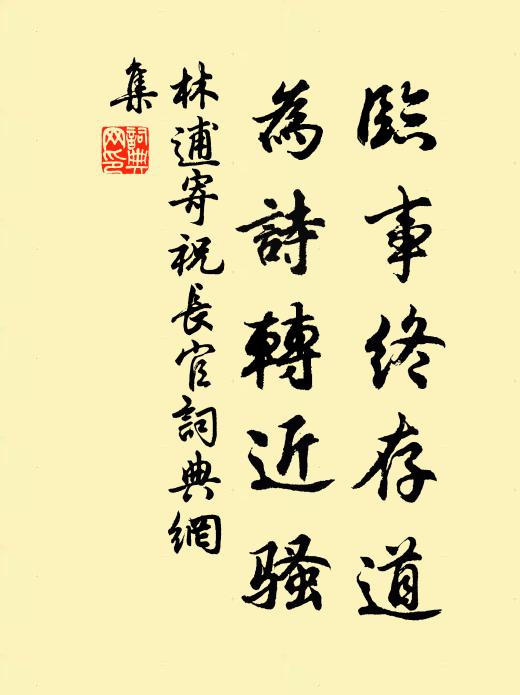 臨事終存道
為詩轉近騷
林逋寄祝長官詞典網
集
詞典
网印